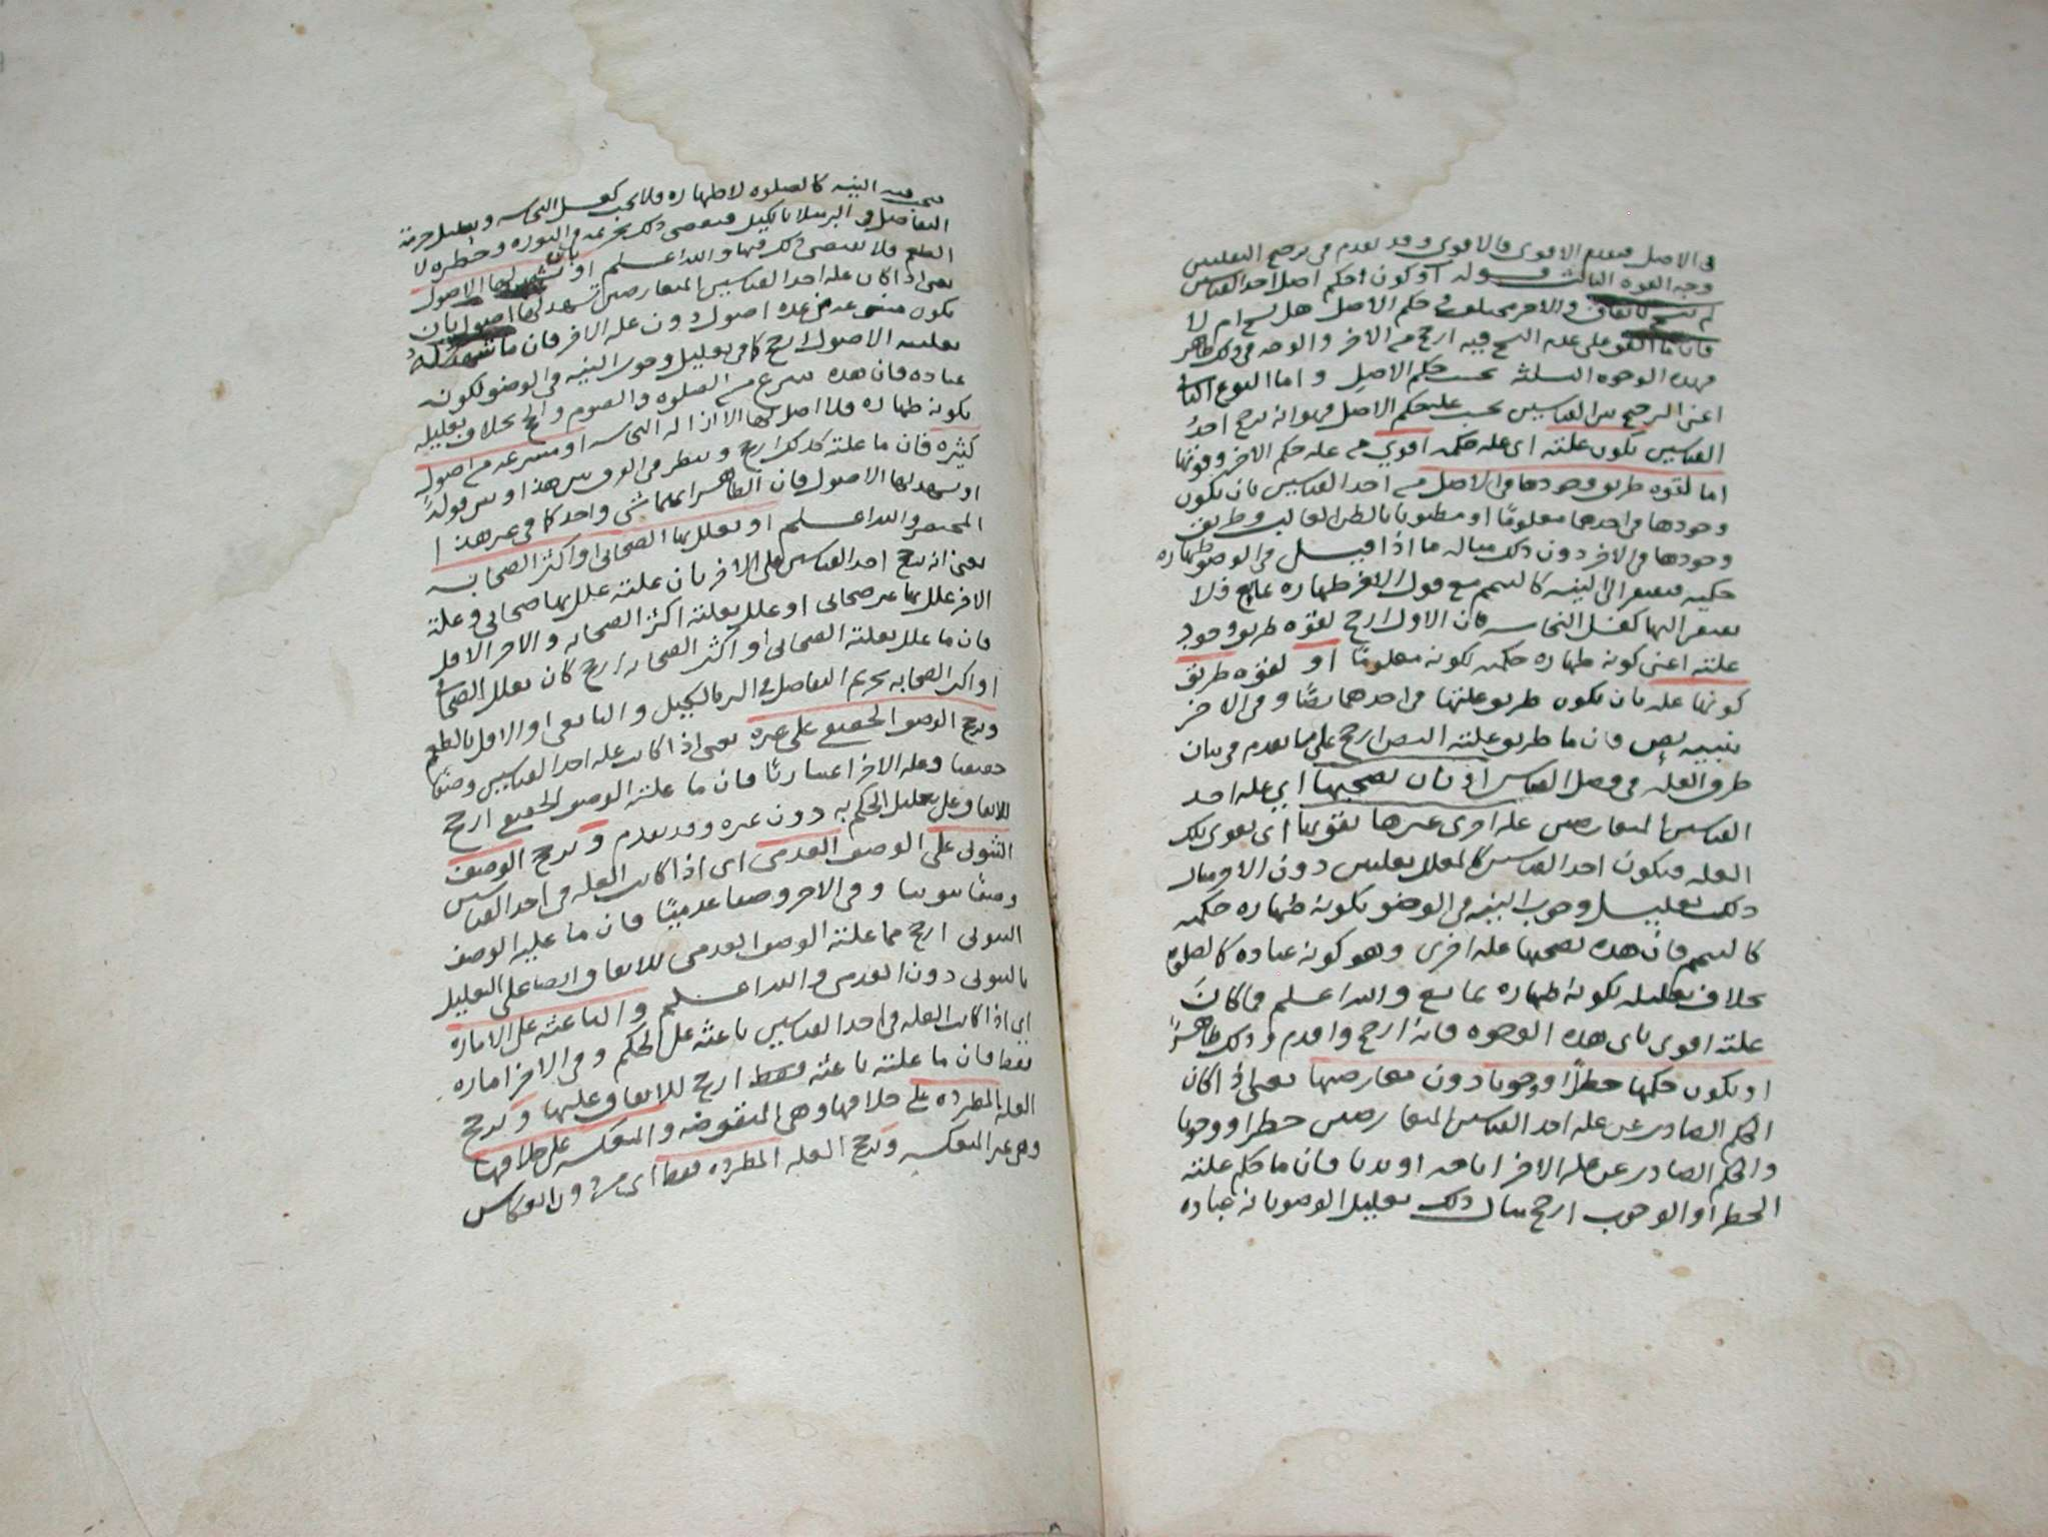 في الاصل فيقدم الاقوى فالاقوى وقد تقدم في ترجيح التعليلين
وجه القوة الثالث قوله او كون حكم اصل احد القياسين
لم ينسخ باتفاق والاخر مختلف في حكم الاصل هل نسخ ام لا
فان ما اتفق على عدم النسخ فيه ارجح من الاخر والوجه في ذلك ظاهر
فهذه الوجوه الثلثة بحسب حكم الاصل واما النوع الثاني
اعني الترجيح بين القياسين بحسب علة حكم الاصل فهو انه يرجح احد
القياسين بكون علته اي علة حكمه اقوى من علة حكم الاخر وقوتها
اما لقوة طريق وجودها في الاصل من احد القياسين بان يكون
وجودها في احدهما معلومًا او مظنونا بالظن الغالب وطريق
وجودها في الاخر دون ذلك مثاله ما اذا قيل في الوضوء طهارة
حكمية فيفتقر الى النية كالتيمم مع قول الاخر طهارة بمايع فلا
يفتقر اليها كغسل النجاسة فان الاول ارجح لقوة طريق وجود
علته اعني كونه طهارة حكمية لكونه معلومًا او لقوة طريق
كونها علة بان يكون طريق علتها في احدهما نصًا وفي الاخر
تنبيه نص فان ما طريق علته النص ارجح على ما تقدم في بيان
طرق العلة في فصل القياس او بان تصحبها اي علة احد
القياسين المتعارضين علة اخرى غيرها تقويها اي تقوي تلك
العلة فيكون احد القياسين كالمعلل بعلتين دون الاخر مثال
ذلك تعليل وجوب النية في الوضوء بكونه طهارة حكمية
كالتيمم فان هذه تصحبها علة اخرى وهو كونه عبادة كالصلوة
بخلاف تعليله بكونه طهارة بمايع والله اعلم فما كانت
علته اقوى باي هذه الوجوه فانه ارجح واقدم وذلك ظاهر
او بكون حكمها حظرًا او وجوبا دون معارضها يعني اذا كان
الحكم الصادر عن علة احد القياسين المتعارضين حظرا او وجوبا
والحكم الصادر عن علة الاخر اباحة او ندبا فان ما حكم علته
الحظر او الوجوب ارجح مثال ذلك تعليل الوضوء بانه عبادة
فتجب فيه النية كالصلوة لا طهارة فلا تجب كغسل النجاسة وتعليل حرمة
التفاضل في البر مثلا بالكيل فيقتضي ذلك تحريمه في النورة وحظره لا
الطعم فلا يقتضي ذلك فيها والله اعلم او بان تشهد لها الاصول
يعني اذا كان علة احد القياسين المتعارضين تشهد لها اصول بان
يكون منتزعة من عدة اصول دون علة الاخر فان ما شهد له
بعليته الاصول ارجح كما في تعليل وجوب النية في الوضوء بكونه
عبادة فان هذه تنتزع من الصلوة والصوم والحج بخلاف تعليله
بكونه طهارة فلا اصل لها الا ازالة النجاسة او منتزعة من اصول
كثيرة فان ما علته كذلك ارجح وينظر في الفرق بين هذا وبين قوله
او تشهد لها الاصول فان الظاهر انهما شي واحد كما في غير هذا
المختصر والله اعلم او يعلل بها الصحابي او اكثر الصحابة
يعني انه يرجح احد القياسين على الاخر بان علته علل بها صحابي وعلة
الاخر علل بها غير صحابي او علل بعلته اكثر الصحابة والاخر الاقل
فان ما علل بعلته الصحابي او اكثر الصحابة ارجح كان يعلل الصحابي
او اكثر الصحابة تحريم التفاضل في البر بالكيل والتابعي او الاقل بالطعم
ويرجح الوصف الحقيقي على غيره يعني اذا كانت علة احد القياسين وصفا
حقيقيا وعلة الاخر اعتباريًا فان ما علته الوصف الحقيقي ارجح
للاتفاق على تعليل الحكم به دون غيره وقد تقدم ويرجح الوصف
الثبوتي على الوصف العدمي اي اذا كانت العلة في احد القياسين
وصفًا ثبوتيا وفي الاخر وصفا عدميًا فان ما علته الوصف
الثبوتي ارجح مما علته الوصف العدمي للاتفاق ايضا على التعليل
بالثبوتي دون العدمي والله اعلم والباعثة على الامارة
اي اذا كانت العلة في احد القياسين باعثة على الحكم وفي الاخر امارة
فقط فان ما علته باعثة فقط ارجح للاتفاق عليها ويرجح
العلة المطردة على خلافها وهي المنقوضة والمنعكسة على خلافها
وهي غير المنعكسة ويرجح العلة المطردة فقط اي من دون انعكاس